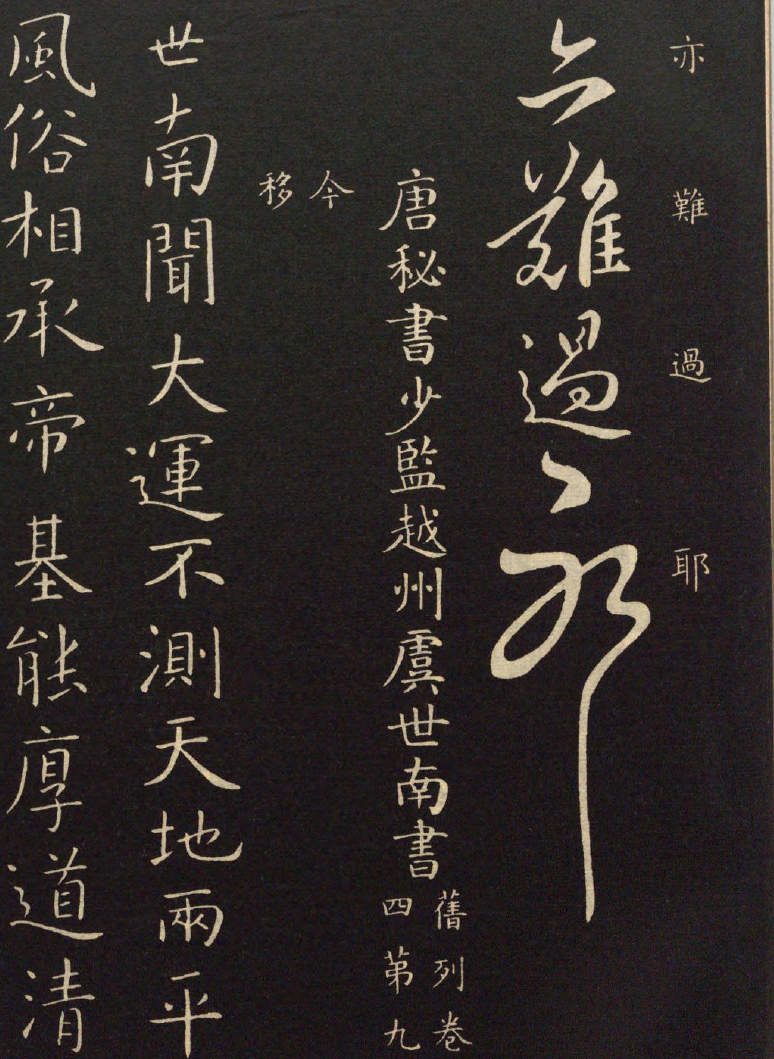 亦難過耶
亦難過〻耶
唐秘書少監越州虞世南書
舊列卷
四第九
今
移
世南聞大運不測天地兩平
風俗相承帝基能厚道清